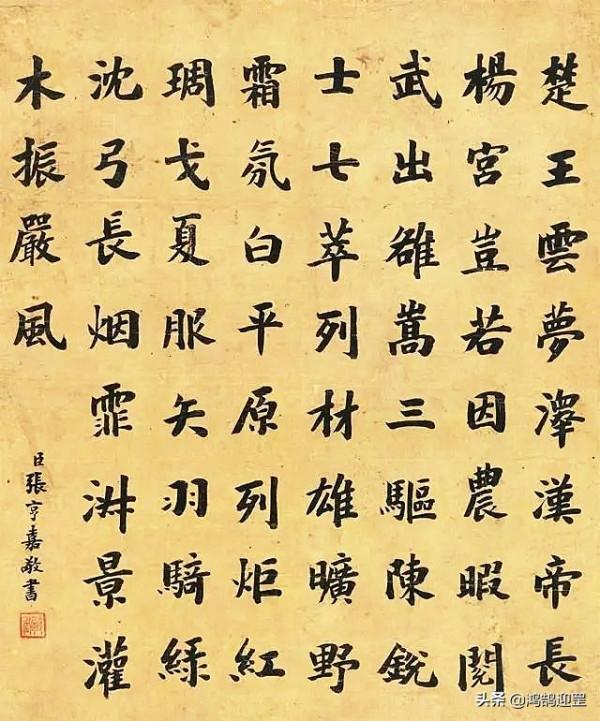 楚王雲夢澤漢帝長
楊宮豈若因農暇閱
武出雒嵩三驅陳銳
士七萃列材雄曠野
霜氛白平原列炬紅
琱戈夏服矢羽騎綠
沈弓長烟霏景灌
木振嚴風
臣張亨嘉敬書
头条 @鸿鹄迎罡